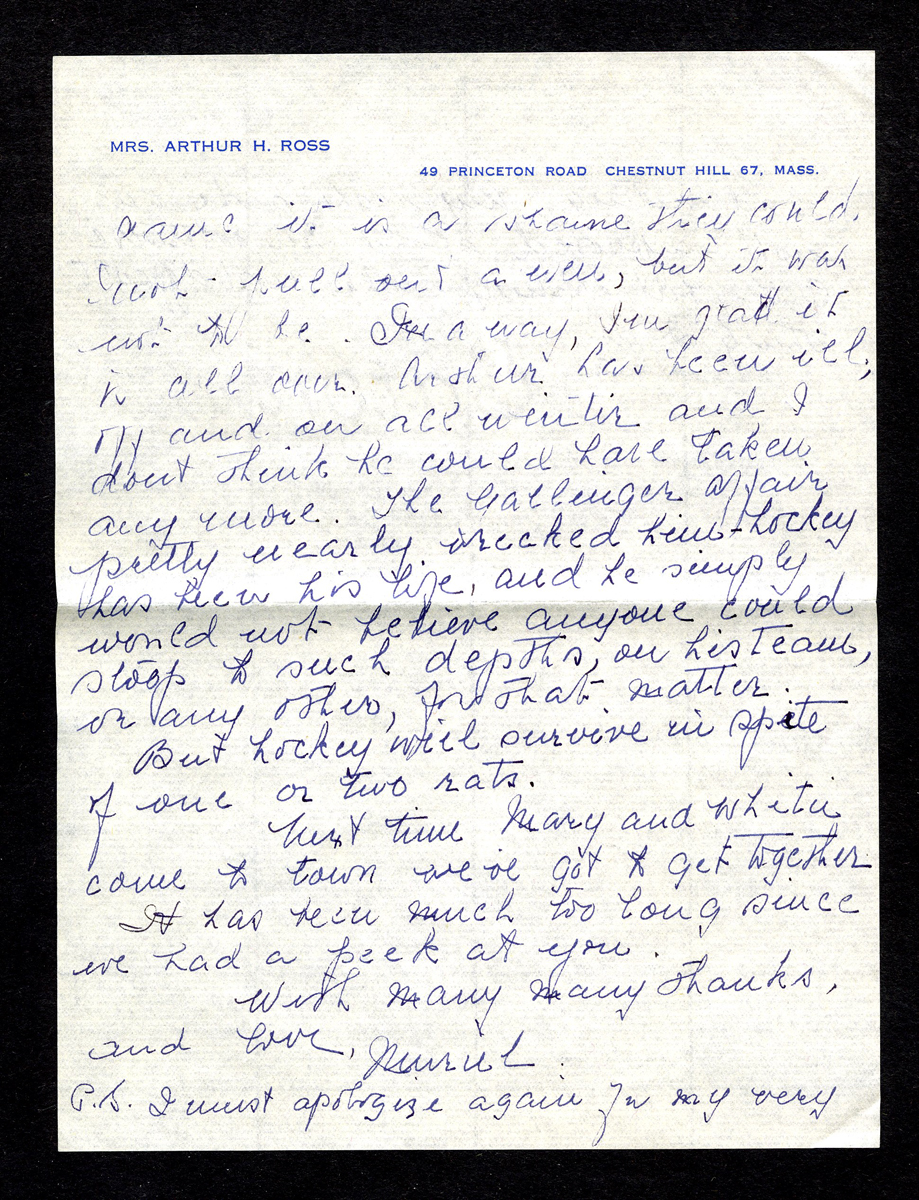 MRS. ARTHUR H. ROSS
49 PRINCETON ROAD CHESTNUT HILL 67, MASS.
game it is a shame they could
not pull out a win, but it was
not to be. In a way, I'm glad it
is all over. Arthur has been ill,
off and on all winter and I
dont think he could have taken
any more. The Gallinger affair
pretty nearly wrecked him - hockey
has been his life, and he simply
would not believe anyone could
stoop to such depths, on his team,
or any other, for that matter.
But hockey will survive in spite
of one or two rats.
Next time Mary and Whitie
come to town we've got to get together
It has been much too long since
we had a peek at you.
With many many thanks,
and love, Muriel.
P.S. I must apologize again for my very